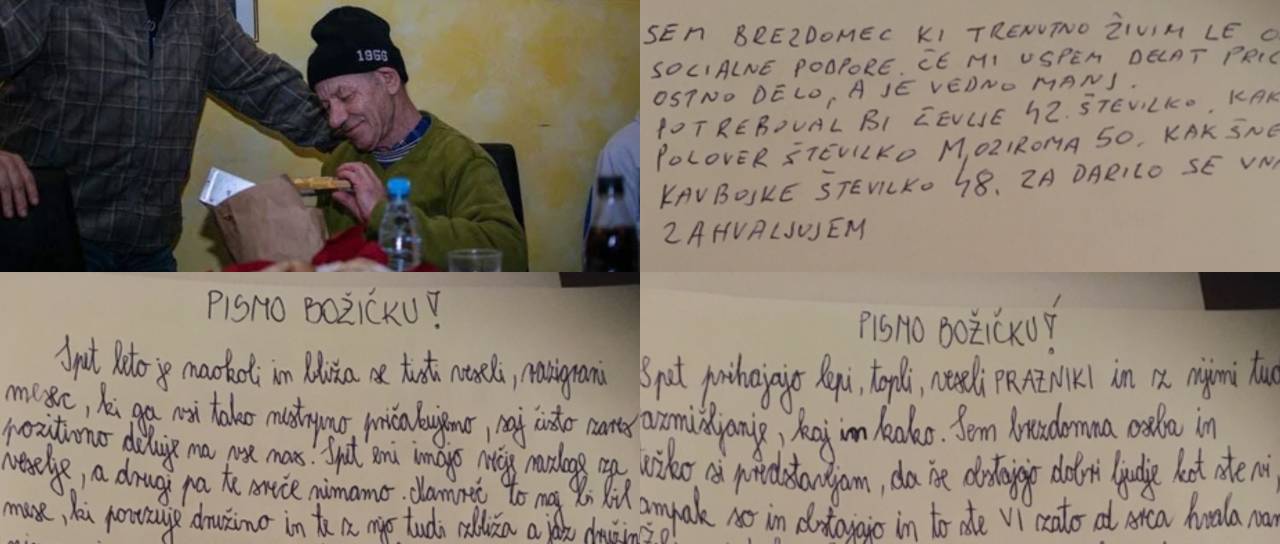 1966
SEM BREZDOMEC KI TRENUTNO ŽIVIM LE O
SOCIALNE PODPORE. ČE MI USPEM DELAT PRIC
OSTNO DELO, A JE VEDNO MANJ.
POTREBOVAL BI ČEVLJE 42. ŠTEVILKO. KAK
POLOVER ŠTEVILKO M, OZIROMA 50. KAKŠNE
KAVBOJKE ŠTEVILKO 48. ZA DARILO SE VNA
ZAHVALJUJEM
PISMO BOŽIČKU!
Spet leto je naokoli in bliža se tisti veseli, razigrani
mesec, ki ga vsi tako nestrpno pričakujemo, saj čisto zares
pozitivno deluje na vse nas. Spet eni imajo večje razloge za
veselje, a drugi pa te sreče nimamo. Namreč to naj bi bil
mesec, ki povezuje družino in te z njo tudi zbliža a jaz družin
PISMO BOŽIČKU!
Spet prihajajo lepi, topli, veseli PRAZNIKI in z njimi tud
azmišljanje, kaj in kako. Sem brezdomna oseba in
ežko si predstavljam, da še obstajajo dobri ljudje kot ste vi,
ampak so in obstajajo in to ste VI zato od srca hvala vam